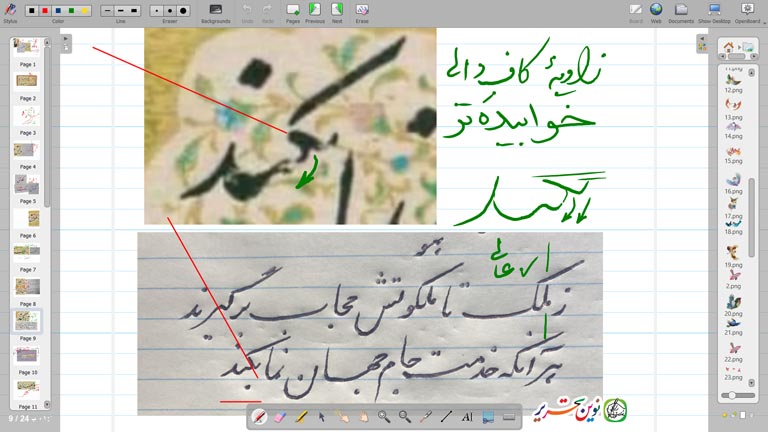 Stylus
Color
Line
Eraser
Backgrounds
Undo
Redo
Pages
Previous
Next
Erase
Board
Web
Documents
Show Desktop
OpenBoard
Page 1
Page 2
Page 3
Page 4
Page 5
Page 6
Page 7
Page 8
Page 9
Page 10
Page 11
9 / 24
زاویهٔ کاف دالی
خوابیده تر
بکند
ز ملک تا ملکوتش حجاب برگیرند
هر آنکه خدمت جام جهان نما بکند
نوین تحریر
12.png
13.png
14.png
15.png
16.png
17.png
18.png
19.png
2.png
20.png
21.png
22.png
23.png